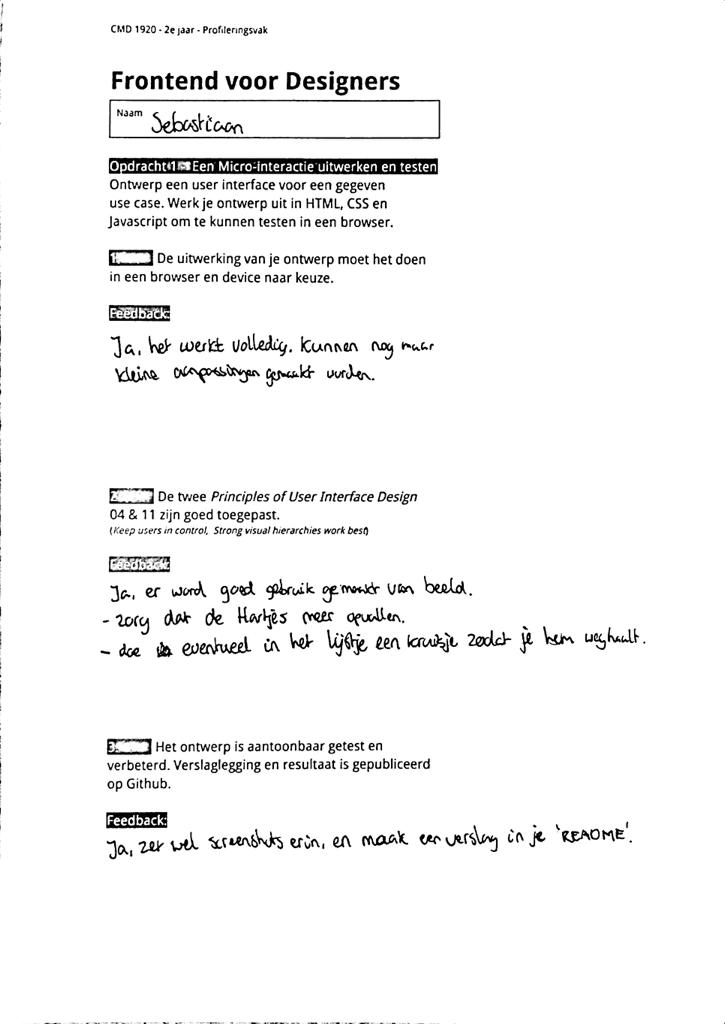 CMD 1920 - 2e jaar - Profileringsvak
Frontend voor Designers
Naam Sebastiaan
Opdracht 1 Een Micro-interactie uitwerken en testen
Ontwerp een user interface voor een gegeven
use case. Werk je ontwerp uit in HTML, CSS en
Javascript om te kunnen testen in een browser.
1. De uitwerking van je ontwerp moet het doen
in een browser en device naar keuze.
Feedback:
Ja, het werkt volledig. Kunnen nog maar
kleine aanpassingen gemaakt worden.
2. De twee Principles of User Interface Design
04 & 11 zijn goed toegepast.
(Keep users in control, Strong visual hierarchies work best)
Feedback:
Ja, er word goed gebruik gemaakt van beeld.
- zorg dat de Hartjes meer opvallen.
- doe eventueel in het lijstje een kruisje zodat je hem weghaalt.
3. Het ontwerp is aantoonbaar getest en
verbeterd. Verslaglegging en resultaat is gepubliceerd
op Github.
Feedback:
Ja, zet wel screenshots erin, en maak een verslag in je 'README'.